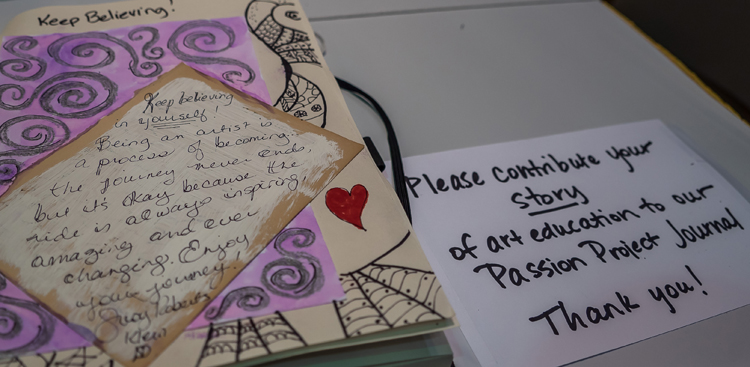 Keep Believing!
Keep believing
in yourself!
Being an artist is
a process of becoming...
the journey never ends,
but it's okay because the
ride is always inspiring,
amazing and ever
changing. Enjoy
your journey!
Klein
Please contribute your
story
of art education to our
Passion Project Journal
Thank you!